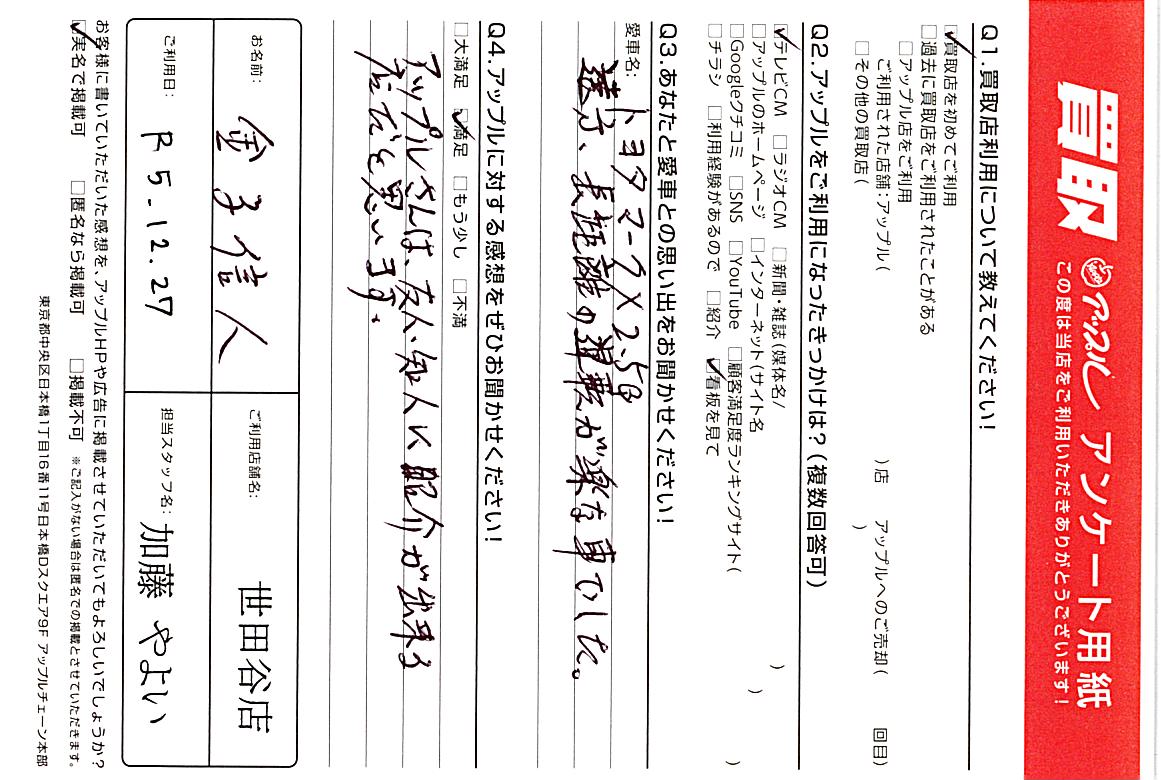 買取 アップル アンケート用紙
この度は当店をご利用いただきありがとうございます！
Q1.買取店利用について教えてください！
☑買取店を初めてご利用
□過去に買取店をご利用されたことがある
□アップル店をご利用
ご利用された店舗：アップル( )店 アップルへのご売却( 回目)
□その他の買取店( )
Q2.アップルをご利用になったきっかけは？(複数回答可)
☑テレビCM □ラジオCM □新聞・雑誌(媒体名/ )
□アップルのホームページ □インターネット(サイト名 )
□Googleクチコミ □SNS □YouTube □顧客満足度ランキングサイト( )
□チラシ □利用経験があるので □紹介 ☑看板を見て
Q3.あなたと愛車との思い出をお聞かせください！
愛車名： トヨタマークX2.5G
遠方、長距離の運転が楽な車でした。
Q4.アップルに対する感想をぜひお聞かせください！
□大満足 ☑満足 □もう少し □不満
アップルさんは、友人、知人に紹介が出来る
店だと思います。
お名前： 金子信人
ご利用店舗名： 世田谷店
ご利用日： R5-12.27
担当スタッフ名： 加藤 やよい
お客様に書いていただいた感想を、アップルHPや広告に掲載させていただいてもよろしいでしょうか？
☑実名で掲載可 □匿名なら掲載可 □掲載不可 ※ご記入がない場合は匿名での掲載とさせていただきます。
東京都中央区日本橋1丁目16番11号日本橋Dスクエア9F アップルチェーン本部